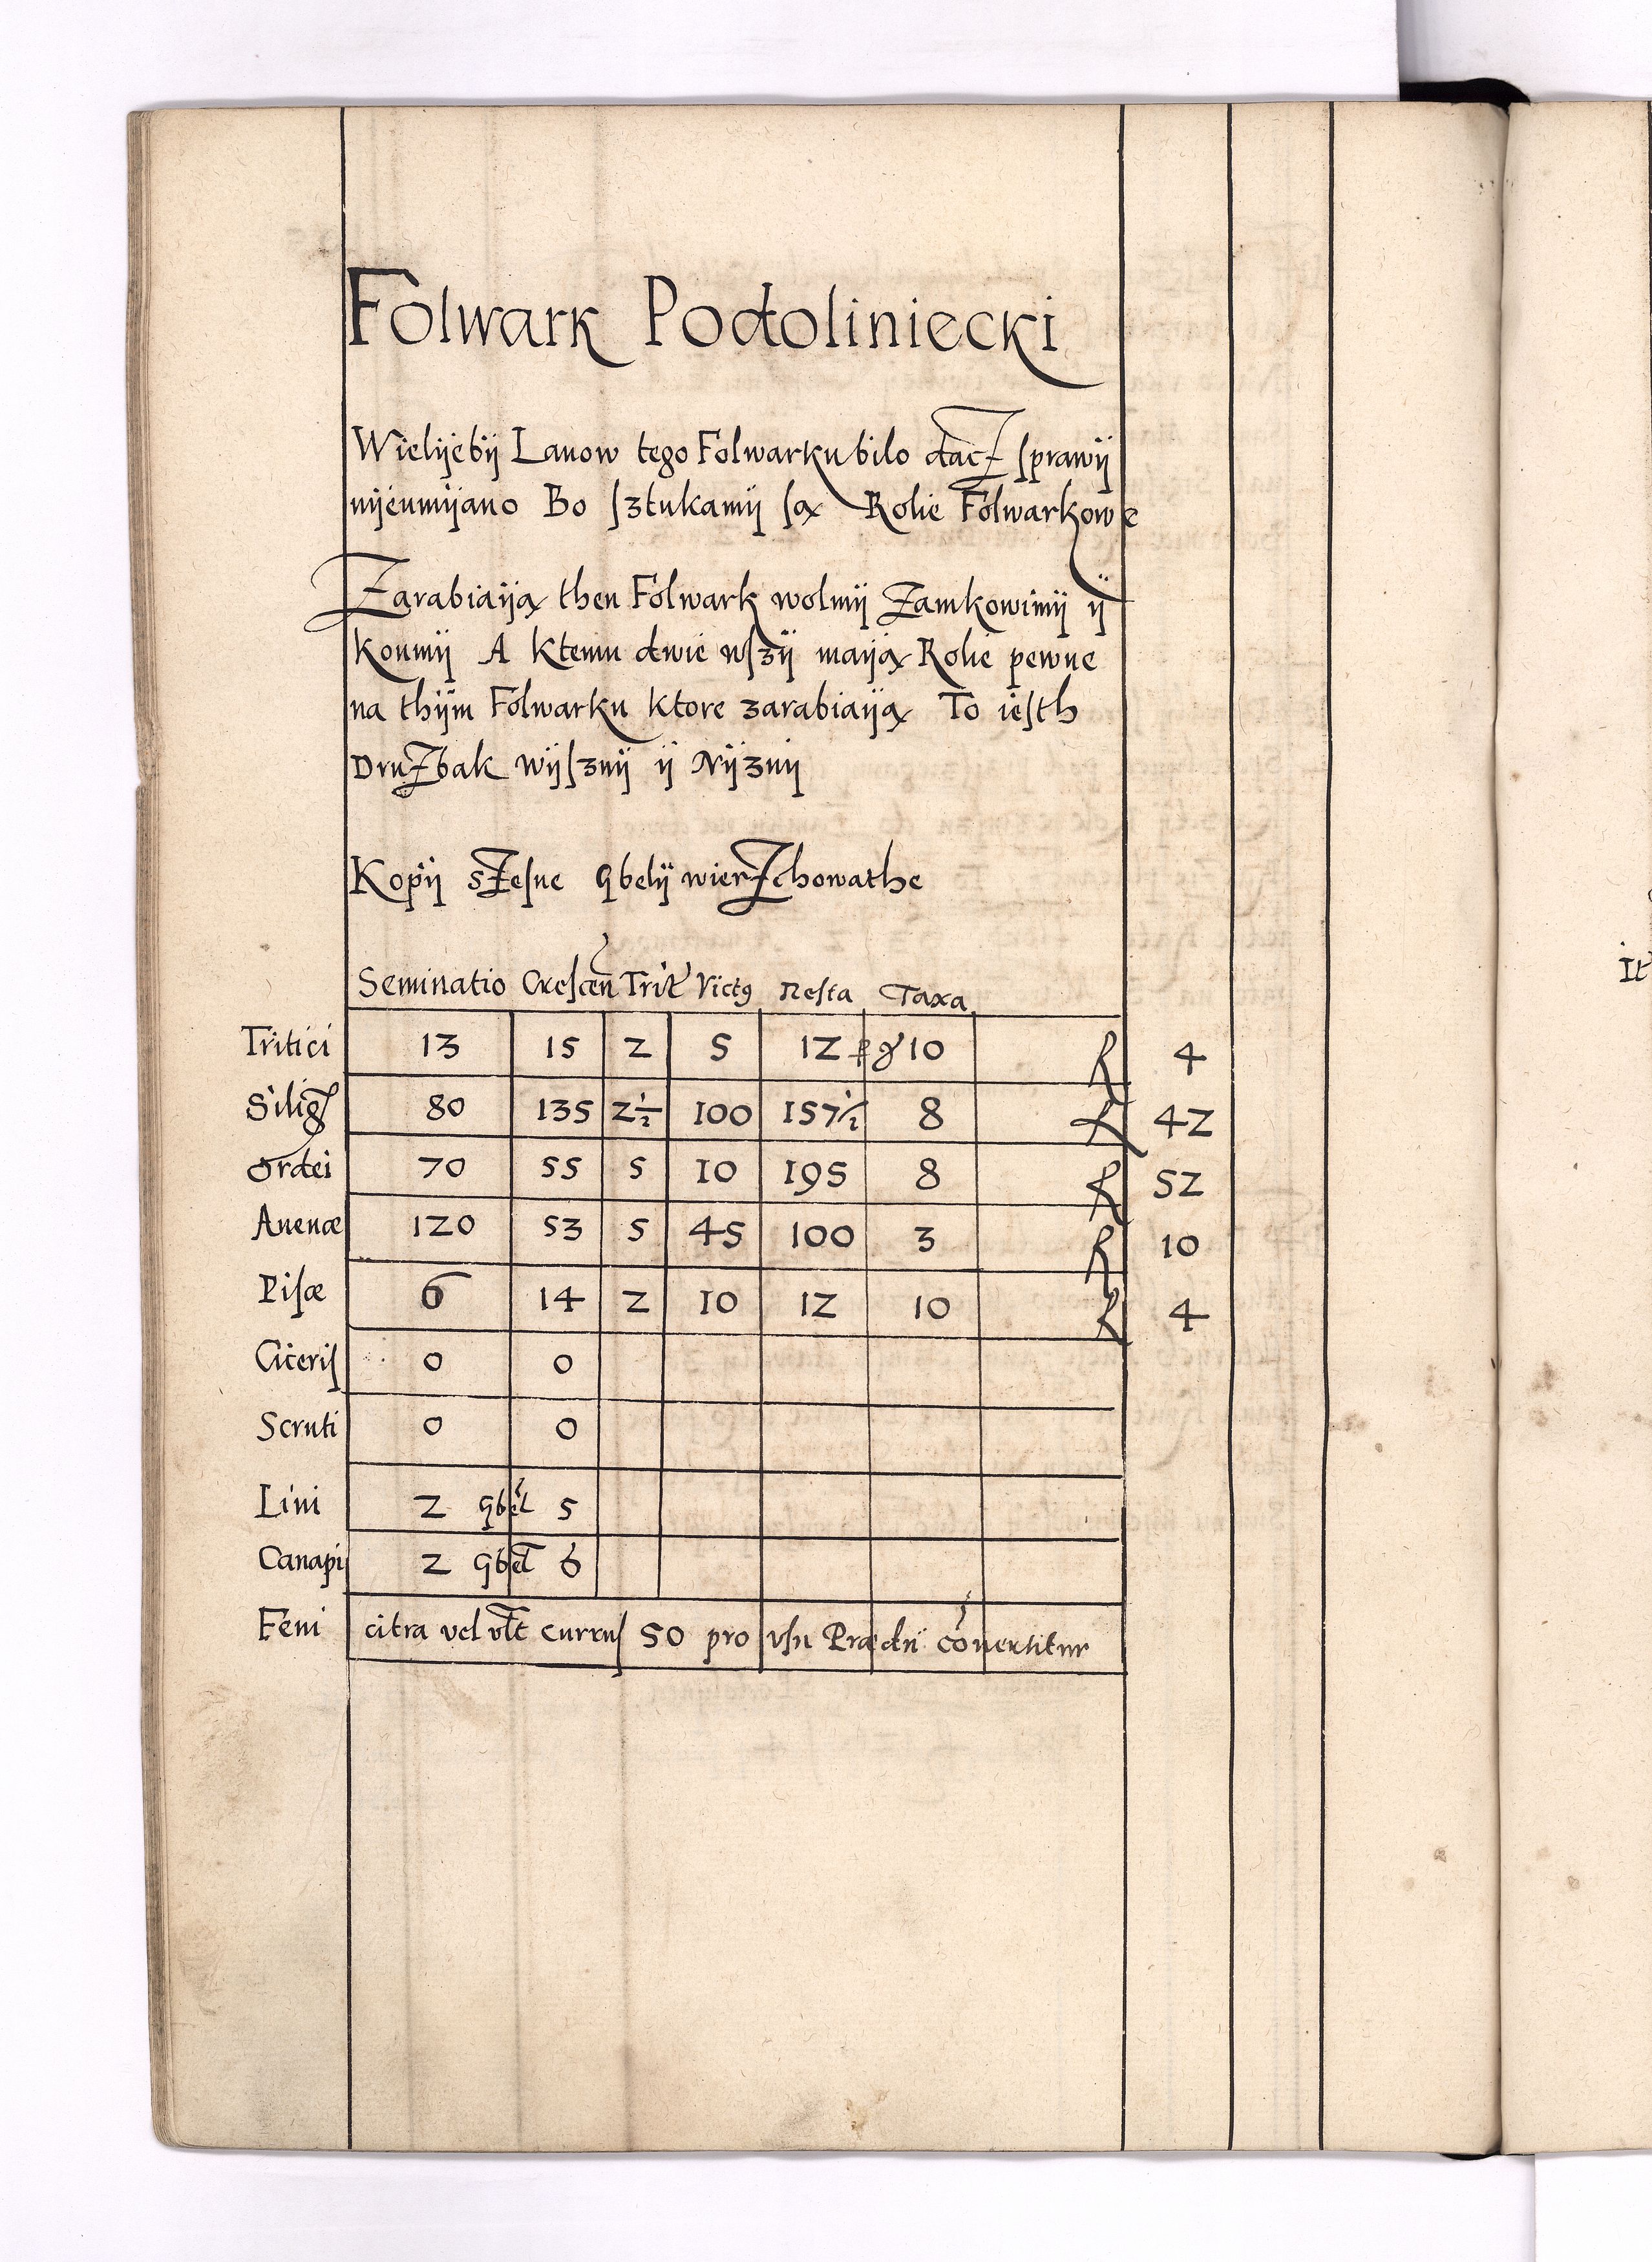 Folwark Podoliniecki
Wielijebij Lanow tego Folwarku bilo dacz sprawij
nijeumijano Bo sztukamij są Rolie Folwarkowe
Zarabiaiją then Folwark wolmij Zamkowimij ij
konmij A ktemu dwie wszij maiją Rolie pewne
na thijm Folwarku ktore zarabiaiją To iesth
Druzbak wijsznij ij Nijznij
Kopij szesne gbelij wierzchowathe
Seminatio Crescen Trit Victꝰ Resta Taxa
Tritici 13 15 2 5 12 ꝑ gr 10 R 4
Silig 80 135 2½ 100 157½ 8 R 42
Ordei 70 55 5 10 195 8 R 52
Auenæ 120 53 5 45 100 3 R 10
Pisæ 6 14 2 10 12 10 R 4
Ciceris 0 0
Scruti 0 0
Lini 2 gbel 5
Canapi 2 gbel 6
Feni citra vel vlt currus 50 pro vsu Prædii cōuertitur
It